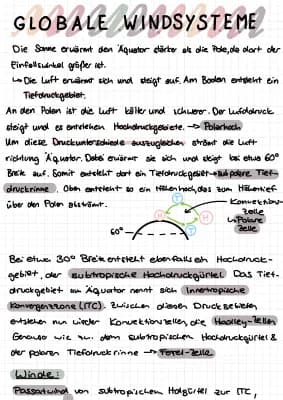 GLOBALE WINDSYSTEME
Die Sonne erwärmt den Äquator stärker als die Pole, da dort der
Einfallswinkel größer ist.
↳ Die Luft erwärmt sich und steigt auf. Am Boden entsteht ein
Tiefdruckgebiet.
An den Polen ist die Luft kälter und schwerer. Der Luftdruck
steigt und es entstehen Hochdruckgebiete. → Polarhoch
Um diese Druckunterschiede auszugleichen strömt die Luft
richtung Äquator. Dabei erwärmt sie sich und steigt bis etwa 60°
Breite auf. Somit entsteht dort ein Tiefdruckgebiet → subpolare Tief-
druckrinne. Oben entsteht so ein Höhenhoch, das zum Höhentief
über den Polen abströmt.
Konvektions-
zelle
↳ Polare
Zelle
T
H
H
T
60°
Bei etwa 30° Breite entsteht ebenfalls ein Hochdruck-
gebiet, der subtropische Hochdruckgürtel. Das Tief-
druckgebiet am Äquator nennt sich Innertropische
Konvergenzzone (ITC). Zwischen diesen Druckgebieten
entstehen nun wieder Konvektionszellen, die Hadley-Zellen
Genauso wie zw. dem subtropischen Hochdruckgürtel &
der polaren Tiefdruckrinne → Ferel-Zelle
Winde:
Passatwind von subtropischen Hochgürtel zur ITC,